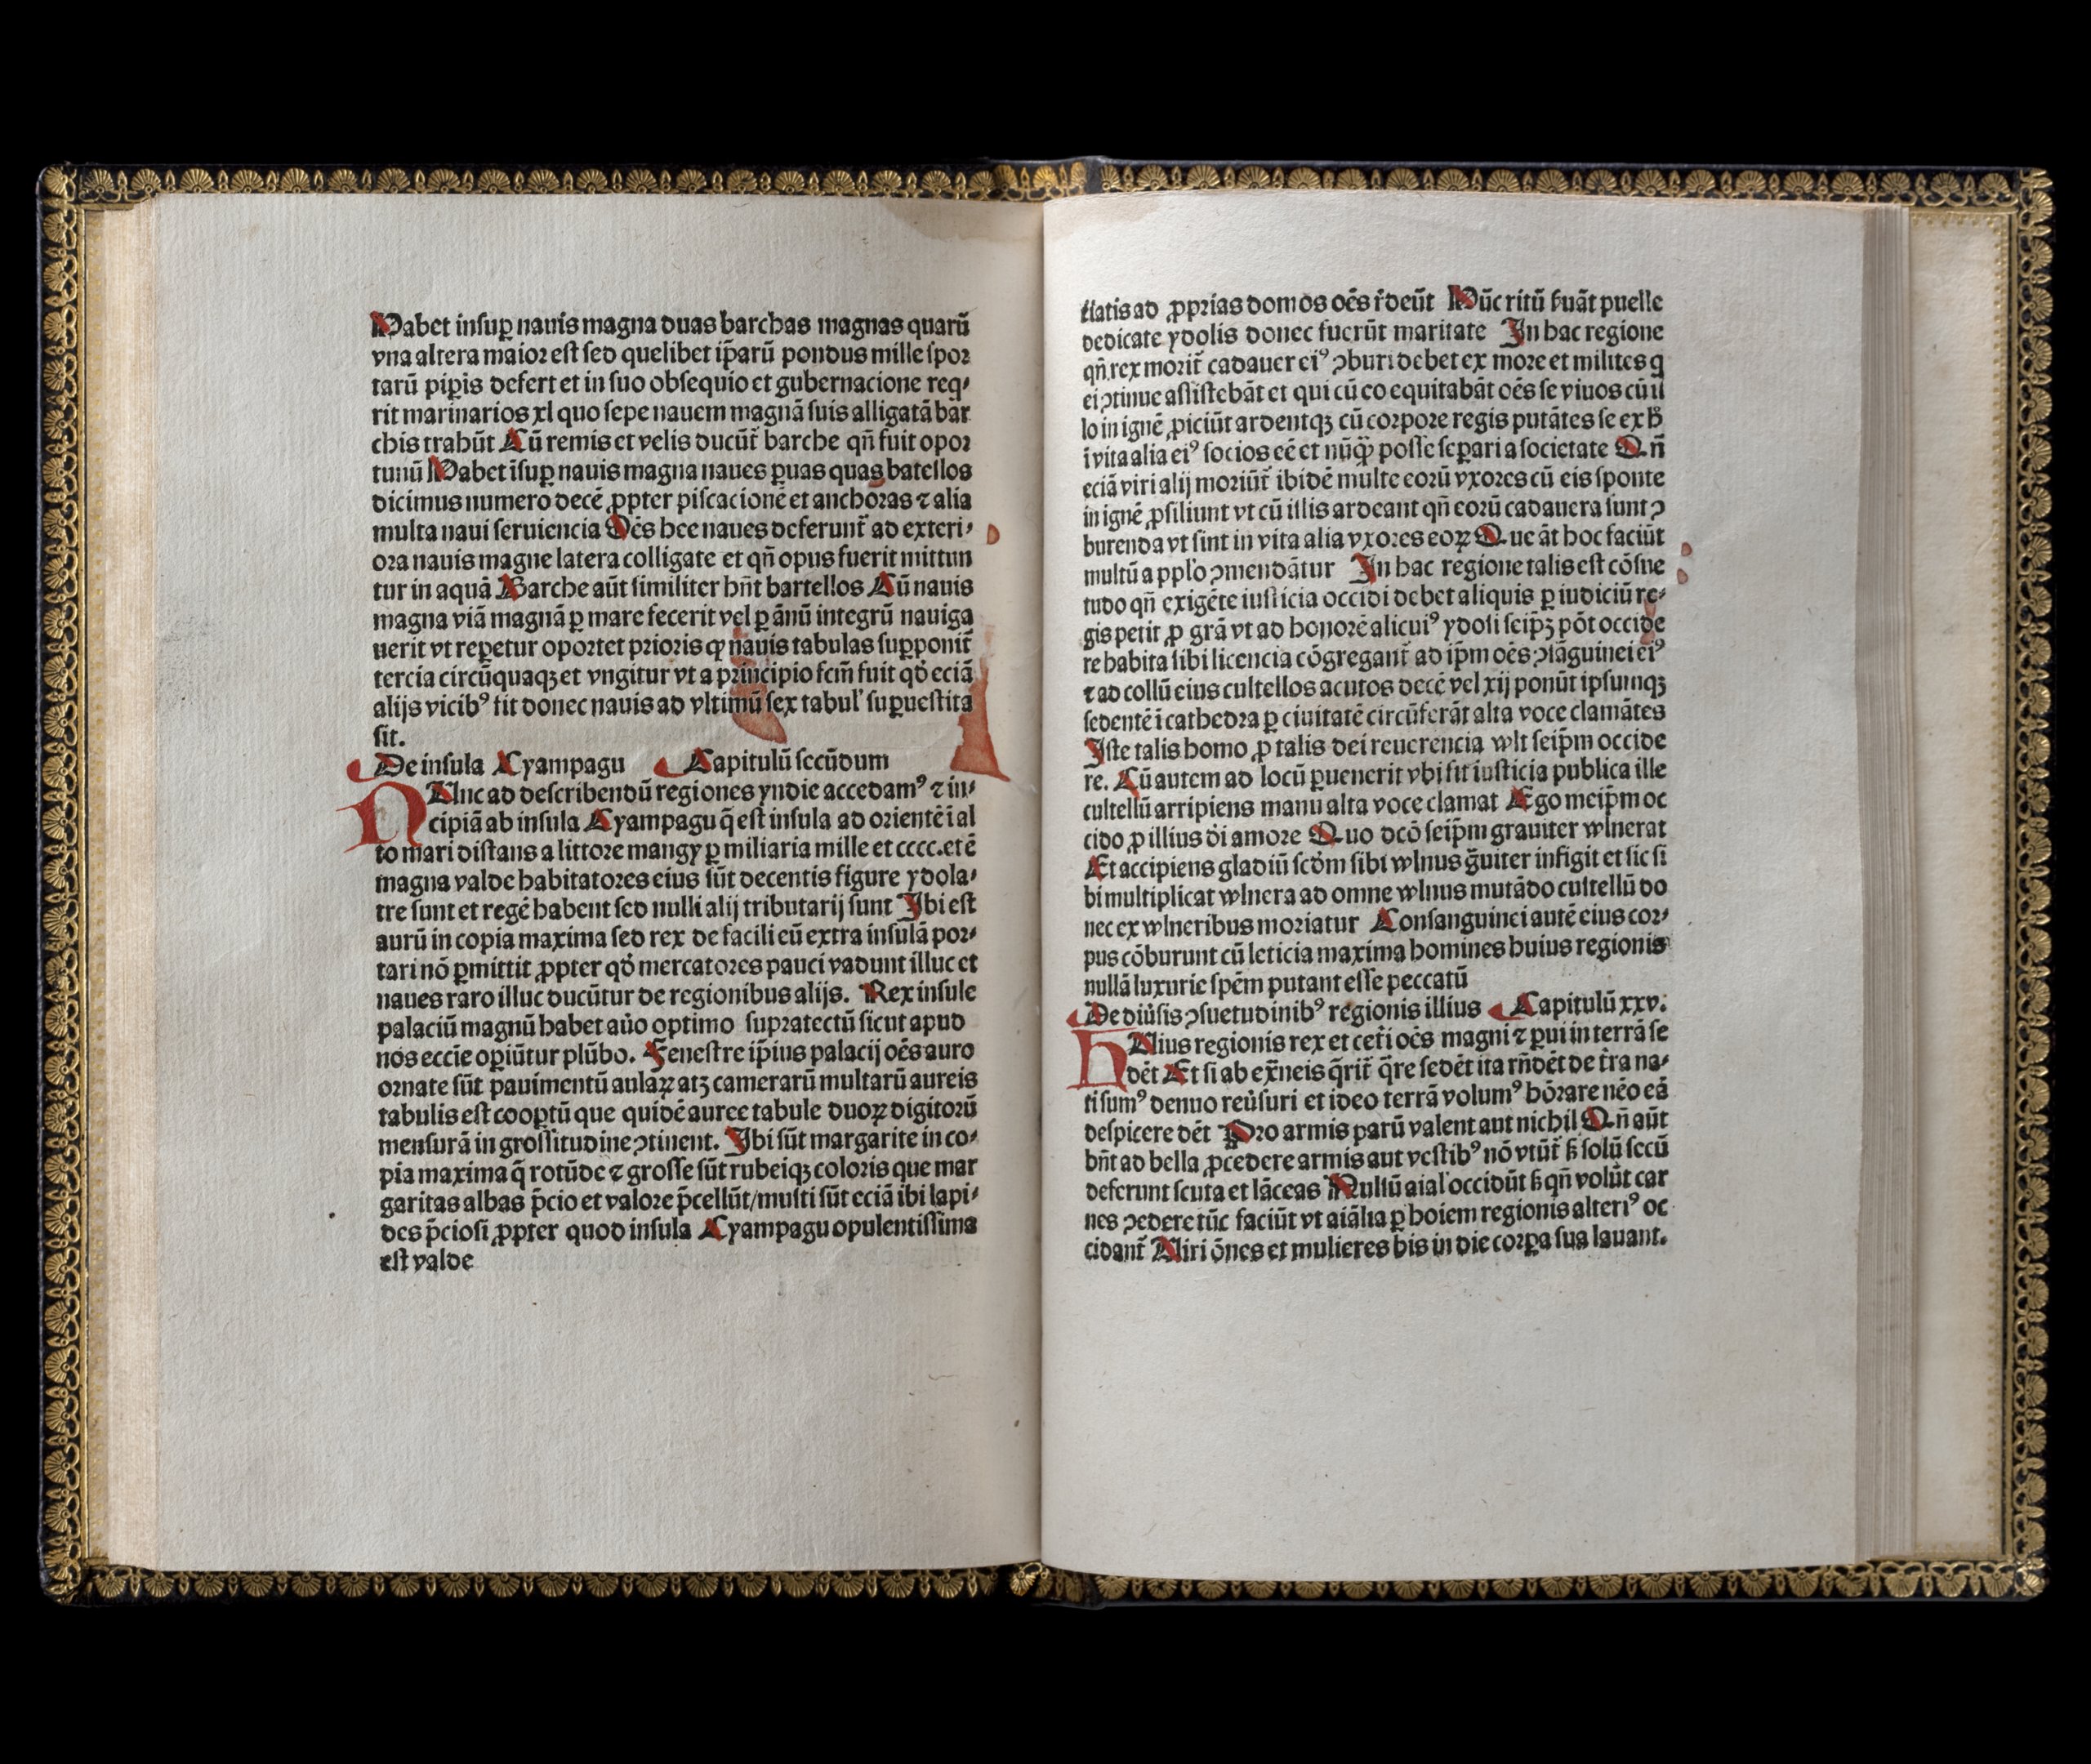 Habet insuꝑ nauis magna duas barchas magnas quarū
vna altera maior est sed quelibet ip̄arū pondus mille spor
tarū pipis defert et in suo obsequio et gubernacione req̄⸗
rit marinarios xl quo sepe nauem magnā suis alligatā bar
chis trahūt Cū remis et velis ducūt barche qn̄ fuit opor
tunū Habet īsuꝑ nauis magna naues ꝑuas quas batellos
dicimus numero decē ꝓpter piscacionē et anchoras ⁊ alia
multa naui seruiencia Oēs hee naues deferunt̄ ad exteri⸗
ora nauis magne latera colligate et qn̄ opus fuerit mittun
tur in aquā Barche aūt similiter hn̄t bartellos Cū nauis
magna viā magnā ꝑ mare fecerit vel ꝑ ānū integrū nauiga
uerit vt reꝑetur oportet prioris ꝙ nauis tabulas suꝑponit̄
tercia circūquaqꝫ et vngitur vt a principio fcm̄ fuit qd̄ eciā
alijs vicibꝰ fit donec nauis ad vltimū sex tabul' suꝑuestita
sit.
De insula Cyampagu Capitulū secūdum
NUnc ad describendū regiones yndie accedamꝰ ⁊ in⸗
cipiā ab insula Cyampagu q̄ est insula ad orientē ī al
to mari distans a littore mangy ꝑ miliaria mille et cccc. et ē
magna valde habitatores eius sūt decentis figure ydola⸗
tre sunt et regē habent sed nulli alij tributarij sunt Ibi est
aurū in copia maxima sed rex de facili eū extra insulā por⸗
tari nō ꝑmittit ꝓpter qd̄ mercatores pauci vadunt illuc et
naues raro illuc ducūtur de regionibus alijs. Rex insule
palaciū magnū habet auo optimo supratectū sicut apud
nos eccie oꝑiūtur plūbo. Fenestre ip̄ius palacij oēs auro
ornate sūt pauimentū aulaꝝ atqꝫ camerarū multarū aureis
tabulis est cooptū que quidē auree tabule duoꝝ digitorū
mensurā in grossitudine ꝯtinent. Ibi sūt margarite in co⸗
pia maxima q̄ rotūde ⁊ grosse sūt rubeiqꝫ coloris que mar
garitas albas p̄cio et valore p̄cellūt/multi sūt eciā ibi lapi⸗
des p̄ciosi ꝓpter quod insula Cyampagu opulentissima
est valde
tiatis ad ꝓprias domos oēs r̄deūt Hūc ritū ẜuāt puelle
dedicate ydolis donec fuerūt maritate In hac regione
qn̄ rex morit̄ cadauer eiꝰ ꝯburi debet ex more et milites q
ei ꝯtinue assistebāt et qui cū eo equitabāt oēs se viuos cū il
lo in ignē ꝓiciūt ardentqꝫ cū corpore regis putātes se ex h̄
ī vita alia eiꝰ socios eē et nūqꝙ posse seꝑari a societate Qn̄
eciā viri alij moriūt̄ ibidē multe eorū vxores cū eis sponte
in ignē ꝓsiliunt vt cū illis ardeant qn̄ eorū cadauera sunt ꝯ
burenda vt sint in vita alia vxores eoꝝ Que āt hoc faciūt
multū a pplo ꝯmendātur In hac regione talis est cōsue
tudo qn̄ exigēte iusticia occidi debet aliquis ꝑ iudiciū re⸗
gis petit ꝓ grā vt ad honorē alicuiꝰ ydoli seip̄ꝫ pōt occide
re habita sibi licencia cōgregant̄ ad ip̄m oēs ꝯsāguinei eiꝰ
⁊ ad collū eius cultellos acutos decē vel xij ponūt ipsumqꝫ
sedentē ī cathedra ꝑ ciuitatē circūferāt alta voce clamātes
Iste talis homo ꝓ talis dei reuerencia wlt seip̄m occide
re. Cū autem ad locū ꝑuenerit vbi fit iusticia publica ille
cultellū arripiens manu alta voce clamat Ego meip̄m oc
cido ꝓ illius di amore Quo dcō seip̄m grauiter wlnerat
Et accipiens gladiū scdm sibi wlnus ḡuiter infigit et sic si
bi multiplicat wlnera ad omne wlnus mutādo cultellū do
nec ex wlneribus moriatur Consanguinei autē eius cor⸗
pus cōburunt cū leticia maxima homines huius regionis
nullā luxurie spēm putant esse peccatū
De diūsis ꝯsuetudinibꝰ regionis illius Capitulū xxv.
HUius regionis rex et cet̄i oēs magni ⁊ ꝑui in terrā se
dēt Et si ab ext̄neis q̄rit̄ q̄re sedēt ita rn̄dēt de t̄ra na⸗
ti sumꝰ denuo reūsuri et ideo terrā volumꝰ hōrare nēo eā
despicere dēt Pro armis parū valent aut nichil Qn̄ aūt
hn̄t ad bella ꝓcedere armis aut vestibꝰ nō vtūt̄ ẜ solū secū
deferunt scuta et lāceas Nullū aial' occidūt ẜ qn̄ volūt car
nes ꝯedere tūc faciūt vt aiālia ꝑ hoiem regionis alteriꝰ oc
cidant̄ Uiri ōnes et mulieres bis in die corꝑa sua lauant.